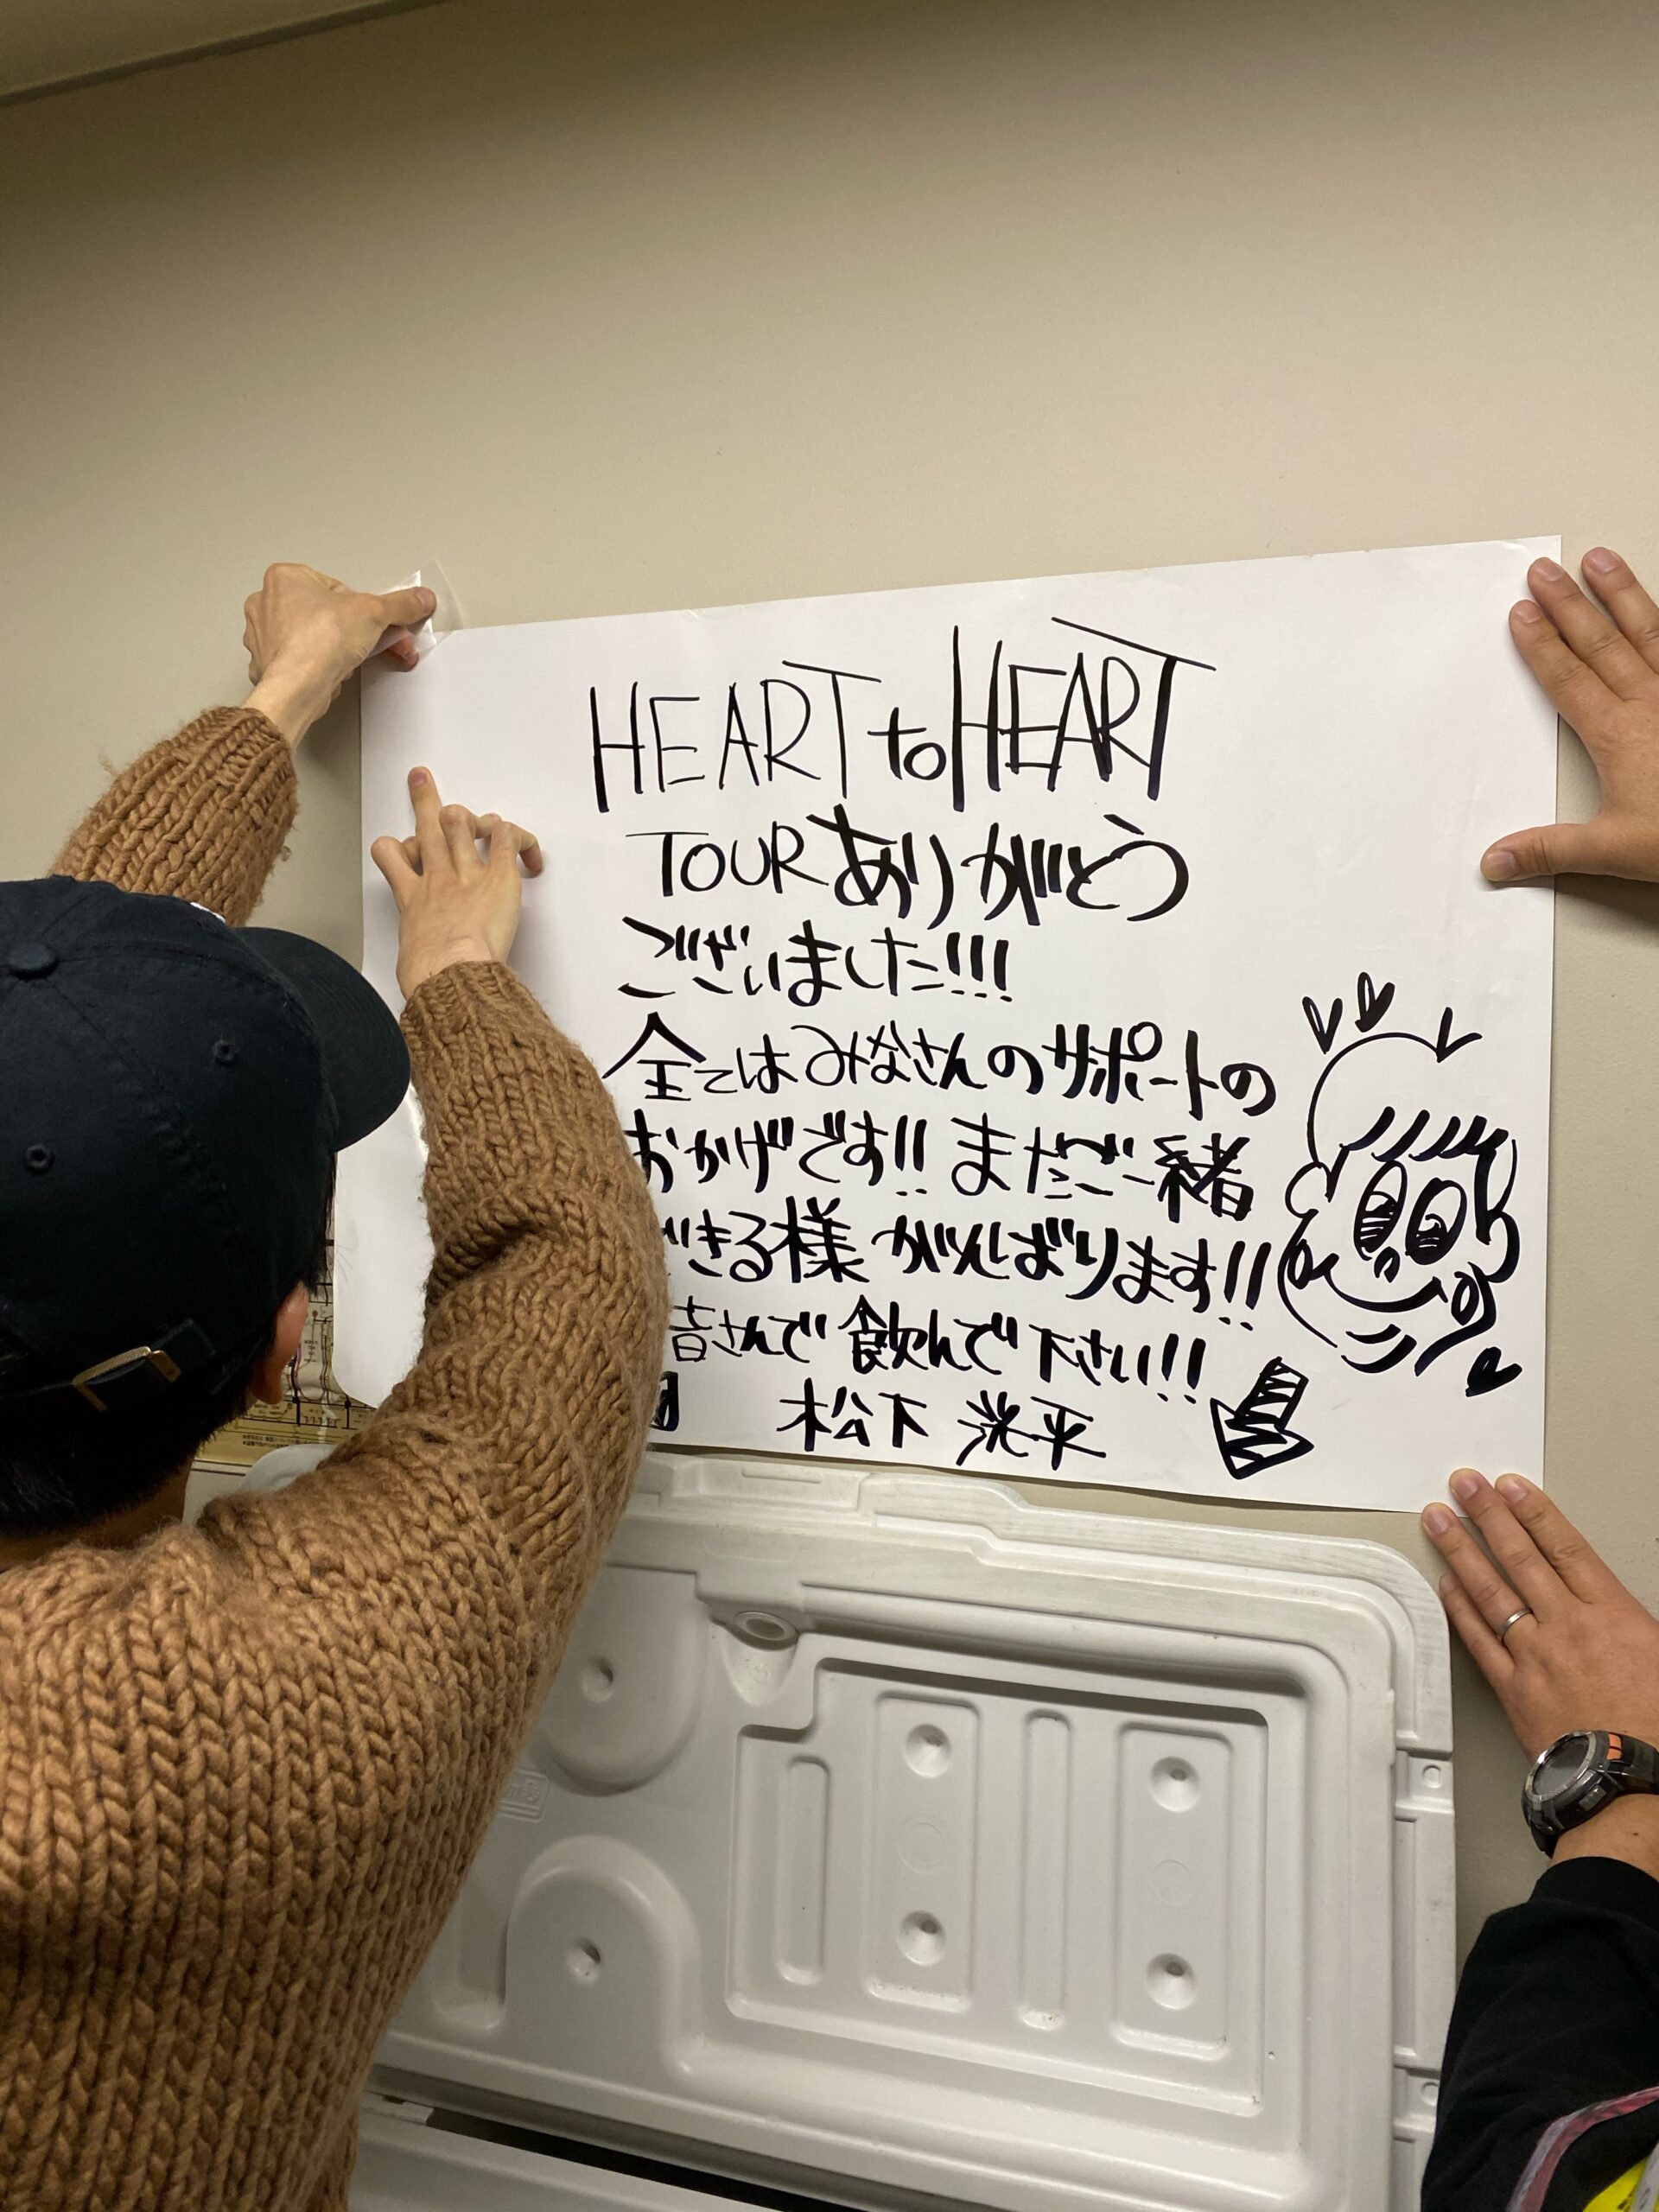 HEART to HEART
TOUR ありがとう
ございました!!!
全てはみなさんのサポートの
おかげです!! まだご一緒
できる様 がんばります!!
皆さんで 飲んで下さい!!
松下 洸平